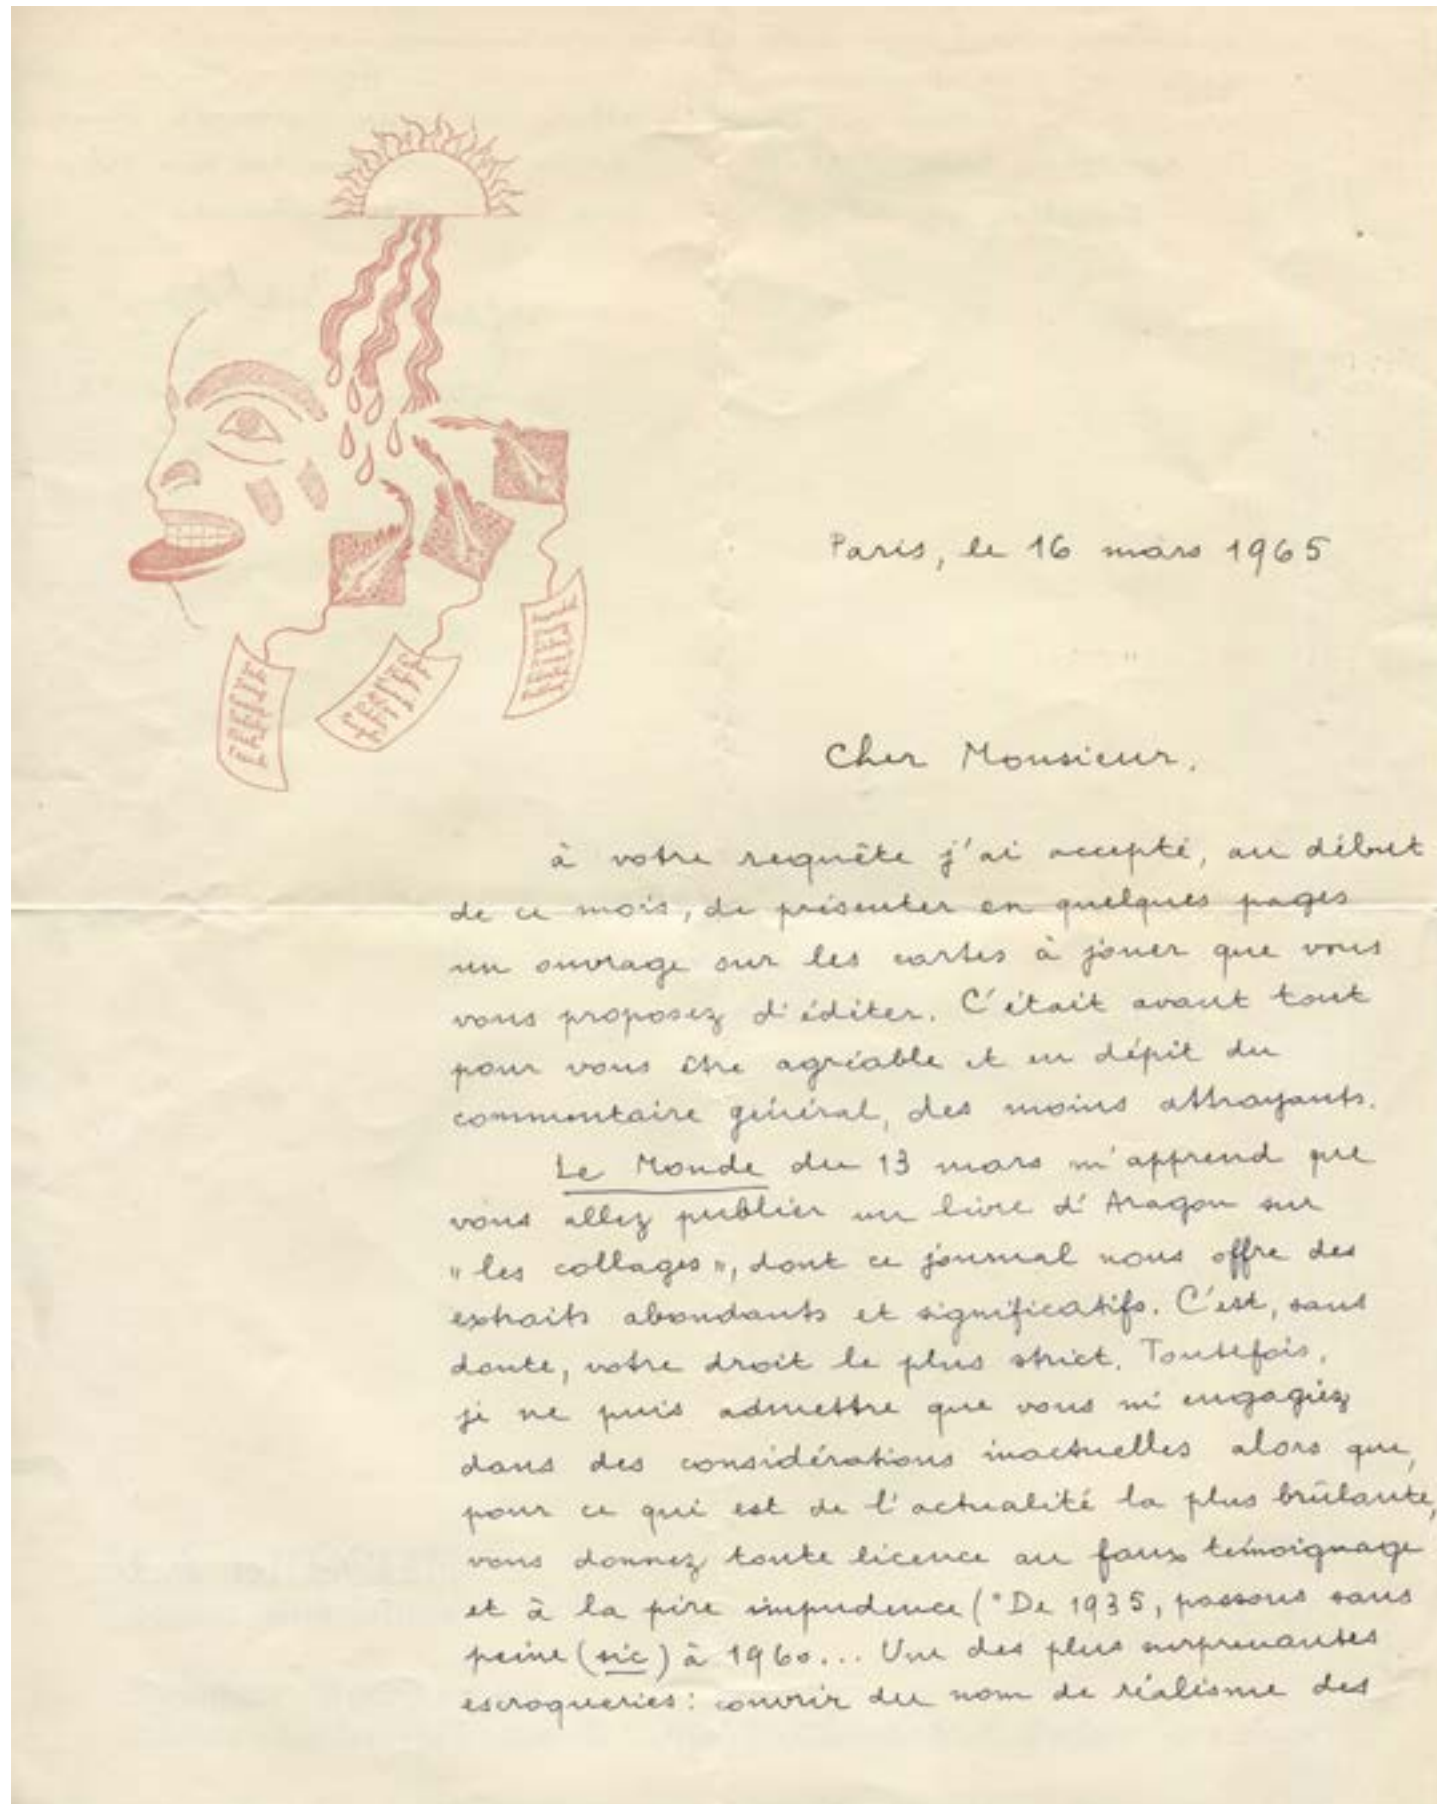 Paris, le 16 mars 1965
Cher Monsieur,
à votre requête j'ai accepté, au début
de ce mois, de présenter en quelques pages
un ouvrage sur les cartes à jouer que vous
vous proposez d'éditer. C'était avant tout
pour vous être agréable et en dépit du
commentaire général, des moins attrayants.
Le Monde du 13 mars m'apprend que
vous allez publier un livre d'Aragon sur
"les collages", dont ce journal nous offre des
extraits abondants et significatifs. C'est, sans
doute, votre droit le plus strict. Toutefois,
je ne puis admettre que vous m'engagiez
dans des considérations inactuelles alors que,
pour ce qui est de l'actualité la plus brûlante,
vous donnez toute licence au faux témoignage
et à la pire impudence ("De 1935, passons sans
peine (sic) à 1960... Une des plus surprenantes
escroqueries : couvrir du nom de réalisme des